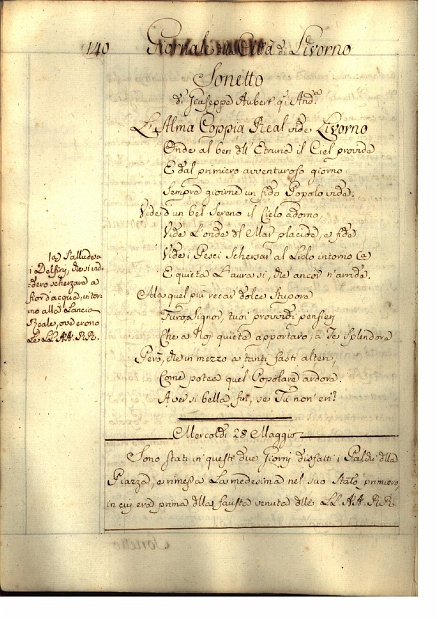 140 Giornale della Città di Livorno
Sonetto
di Giuseppe Aubert qm. And.a
L'Alma Coppia Real vide Livorno
Onde al ben dell'Etruria il Ciel provida
E dal primiero avventuroso giorno
Sempre giorni un fido Popolo vida.
Vide d'un bel sereno il Cielo adorno,
Vide l'onde del Mar placide, e fide
Vide i Pesci scherzar al Lido intorno (a)
E quieta l'aura sì, che ancor n'arride.
Ma quel più recar dolce stupore
Furo, Signor, tuoi providi pensieri
Che a Noi quieta apportaro, a Te splendore
Però, che in mezzo a tanti fasti alteri,
Come potea quel Popolare ardore
Aver sì bella fin, se Tu non eri?
(a) S'allude a
i Delfini, che si vi
dero scherzare a
fior d'acqua, intor
no alla Lancia
Reale, ov'erono
Le LL. AA. RR.
Mercoldì 28 Maggio
Sono stati in questi due Giorni disfatti i Palchi della
Piazza, e rimessa la medesima nel suo Stato primiero
in cui era prima della fausta venuta delle LL. AA. RR.